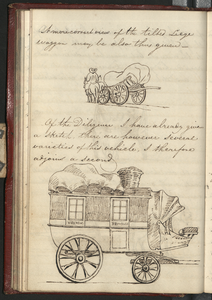 view of the tilted large
waggon may be also thus given —
Of the Diligence I have already given
a sketch. There are however several
varieties of this vehicle, I therefore
a second.